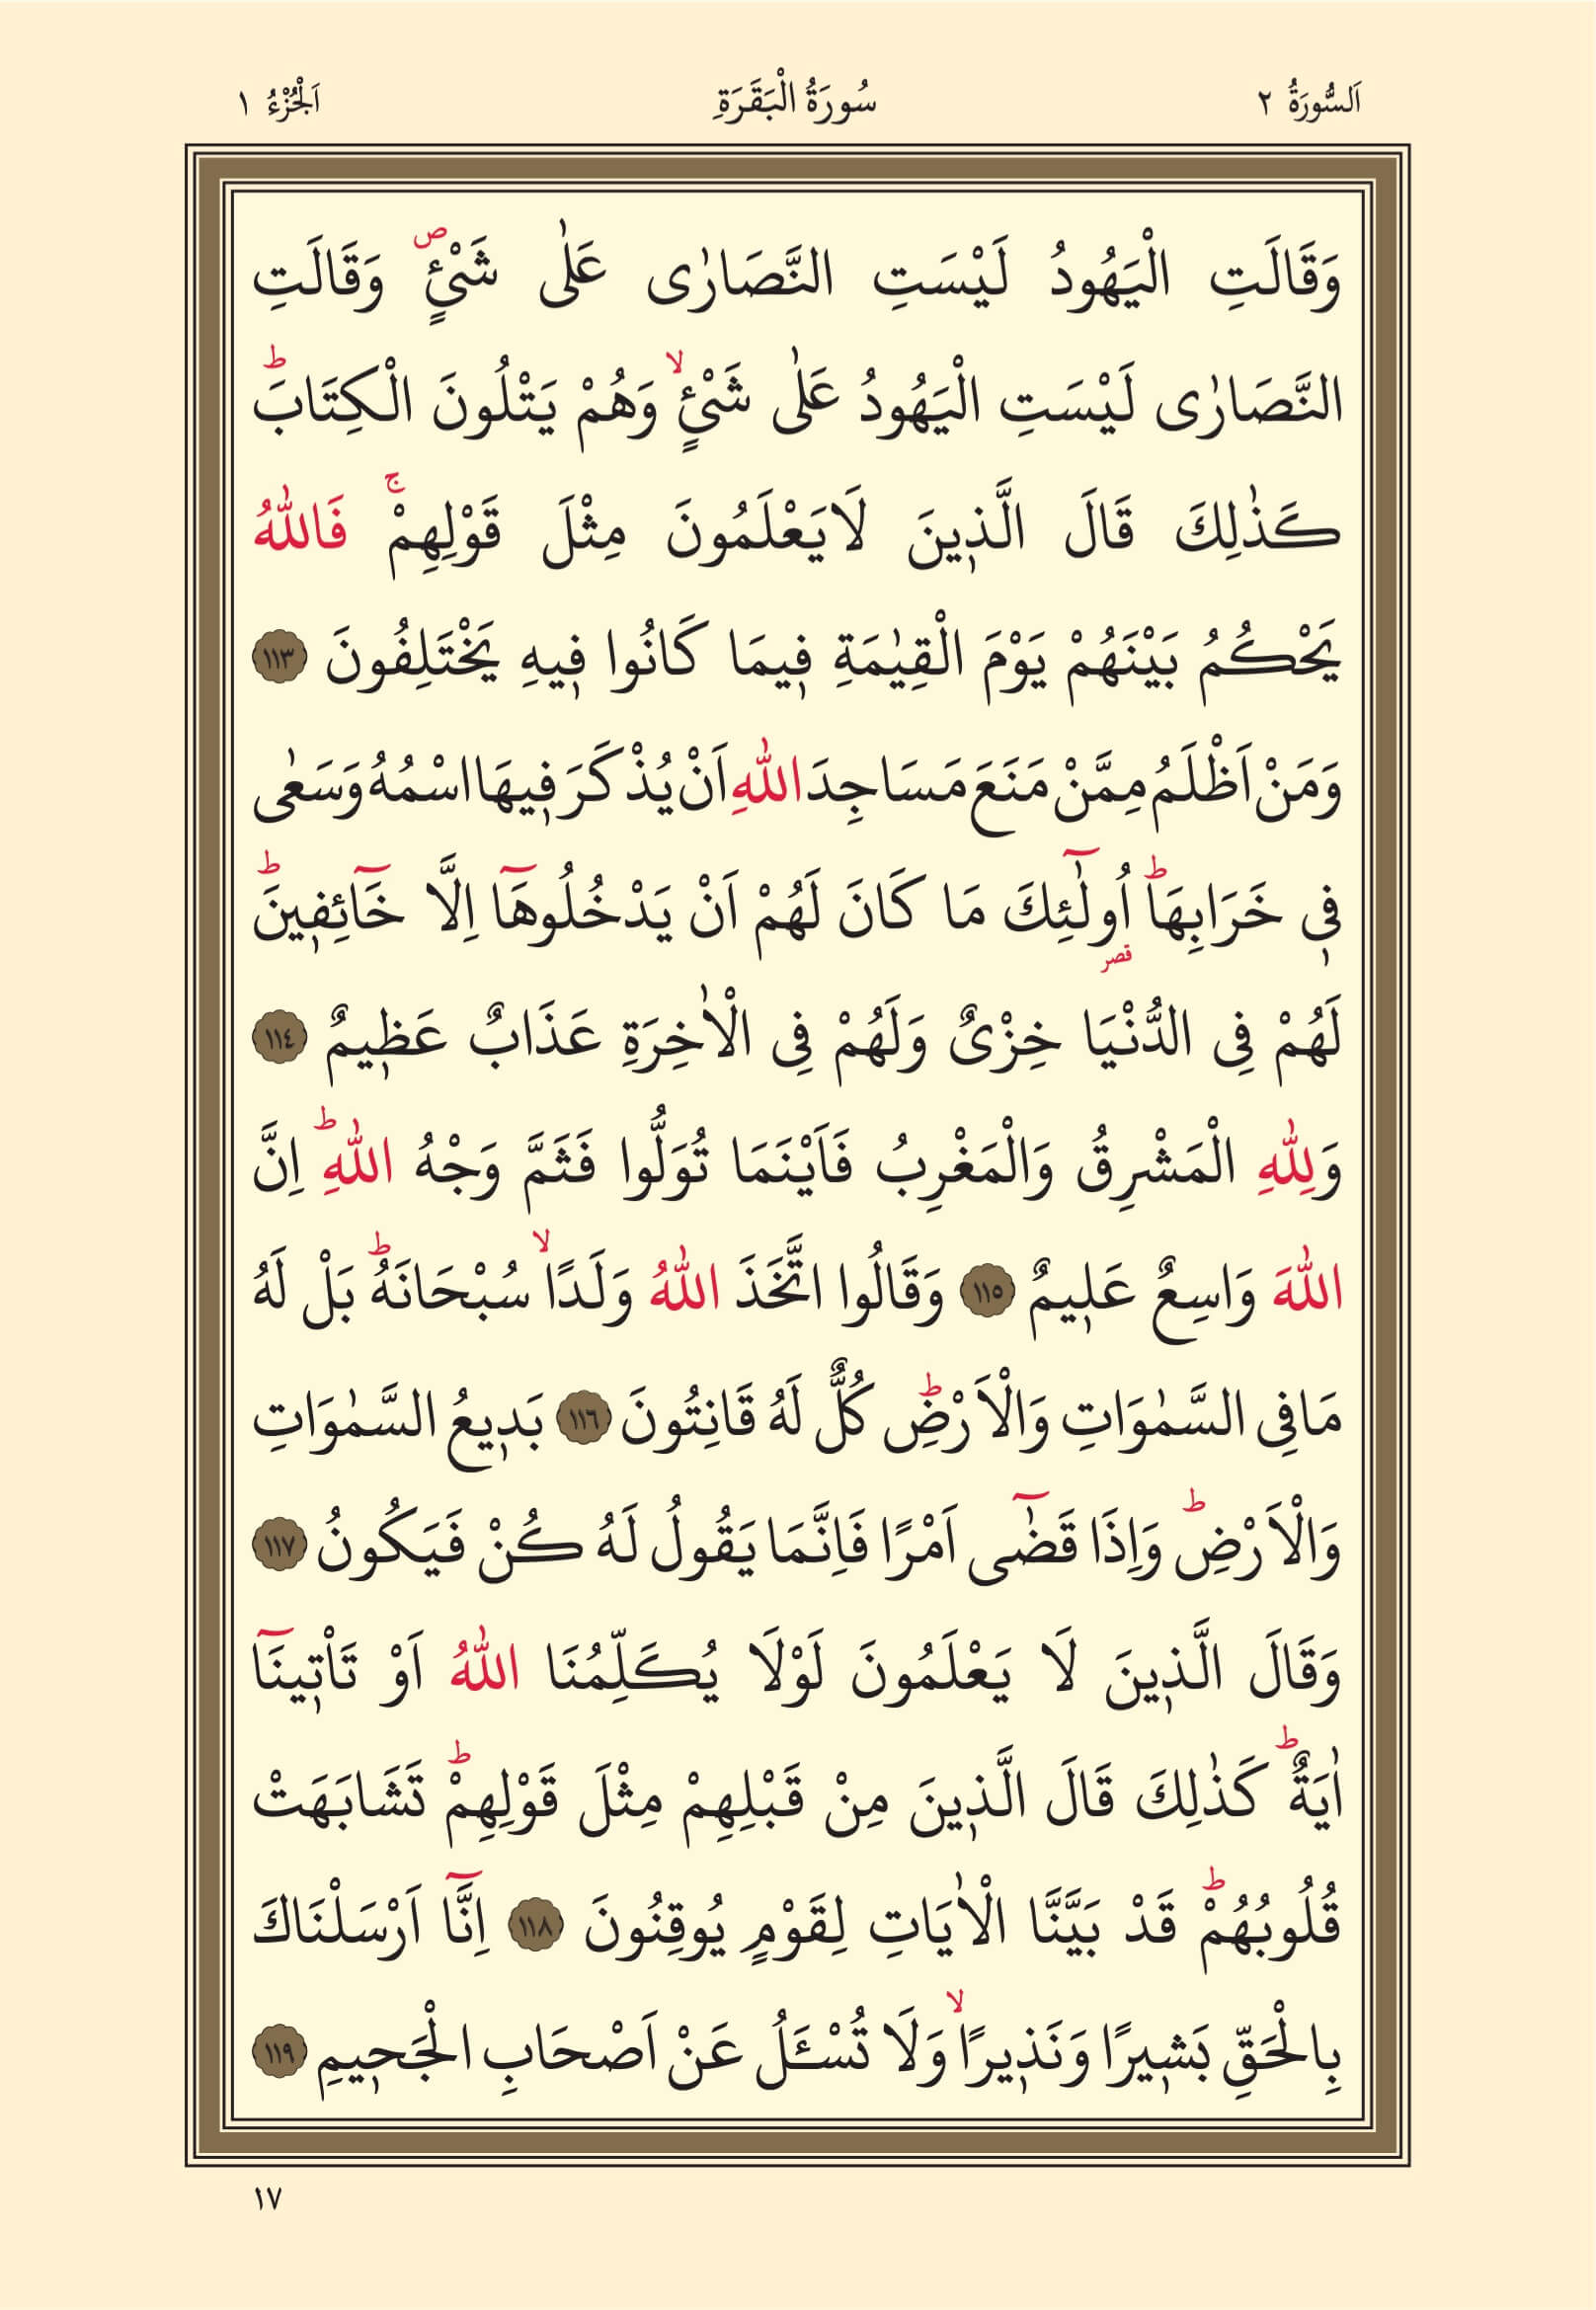 اَلسُّورَةُ ٢ سُورَةُ الْبَقَرَةِ اَلْجُزْءُ ١
وَقَالَتِ الْيَهُودُ لَيْسَتِ النَّصَارٰى عَلٰى شَيْءٍۖ وَقَالَتِ
النَّصَارٰى لَيْسَتِ الْيَهُودُ عَلٰى شَيْءٍۙ وَهُمْ يَتْلُونَ الْكِتَابَؕ
كَذٰلِكَ قَالَ الَّذ۪ينَ لَايَعْلَمُونَ مِثْلَ قَوْلِهِمْۚ فَاللّٰهُ
يَحْكُمُ بَيْنَهُمْ يَوْمَ الْقِيٰمَةِ ف۪يمَا كَانُوا ف۪يهِ يَخْتَلِفُونَ ١١٣
وَمَنْ اَظْلَمُ مِمَّنْ مَنَعَ مَسَاجِدَ اللّٰهِ اَنْ يُذْكَرَ ف۪يهَا اسْمُهُ وَسَعٰى
ف۪ي خَرَابِهَاؕ اُو۬لٰٓئِكَ مَا كَانَ لَهُمْ اَنْ يَدْخُلُوهَٓا اِلَّا خَٓائِف۪ينَؕ
قصر
لَهُمْ فِي الدُّنْيَا خِزْيٌ وَلَهُمْ فِي الْاٰخِرَةِ عَذَابٌ عَظ۪يمٌ ١١٤
وَلِلّٰهِ الْمَشْرِقُ وَالْمَغْرِبُ فَاَيْنَمَا تُوَلُّوا فَثَمَّ وَجْهُ اللّٰهِؕ اِنَّ
اللّٰهَ وَاسِعٌ عَل۪يمٌ ١١٥ وَقَالُوا اتَّخَذَ اللّٰهُ وَلَدًاۙ سُبْحَانَهُؕ بَلْ لَهُ
مَافِي السَّمٰوَاتِ وَالْاَرْضِؕ كُلٌّ لَهُ قَانِتُونَ ١١٦ بَد۪يعُ السَّمٰوَاتِ
وَالْاَرْضِؕ وَاِذَا قَضٰٓى اَمْرًا فَاِنَّمَا يَقُولُ لَهُ كُنْ فَيَكُونُ ١١٧
وَقَالَ الَّذ۪ينَ لَا يَعْلَمُونَ لَوْلَا يُكَلِّمُنَا اللّٰهُ اَوْ تَأْت۪ينَٓا
اٰيَةٌؕ كَذٰلِكَ قَالَ الَّذ۪ينَ مِنْ قَبْلِهِمْ مِثْلَ قَوْلِهِمْؕ تَشَابَهَتْ
قُلُوبُهُمْؕ قَدْ بَيَّنَّا الْاٰيَاتِ لِقَوْمٍ يُوقِنُونَ ١١٨ اِنَّٓا اَرْسَلْنَاكَ
بِالْحَقِّ بَش۪يرًا وَنَذ۪يرًاۙ وَلَا تُسْـَٔلُ عَنْ اَصْحَابِ الْجَح۪يمِ ١١٩
١٧